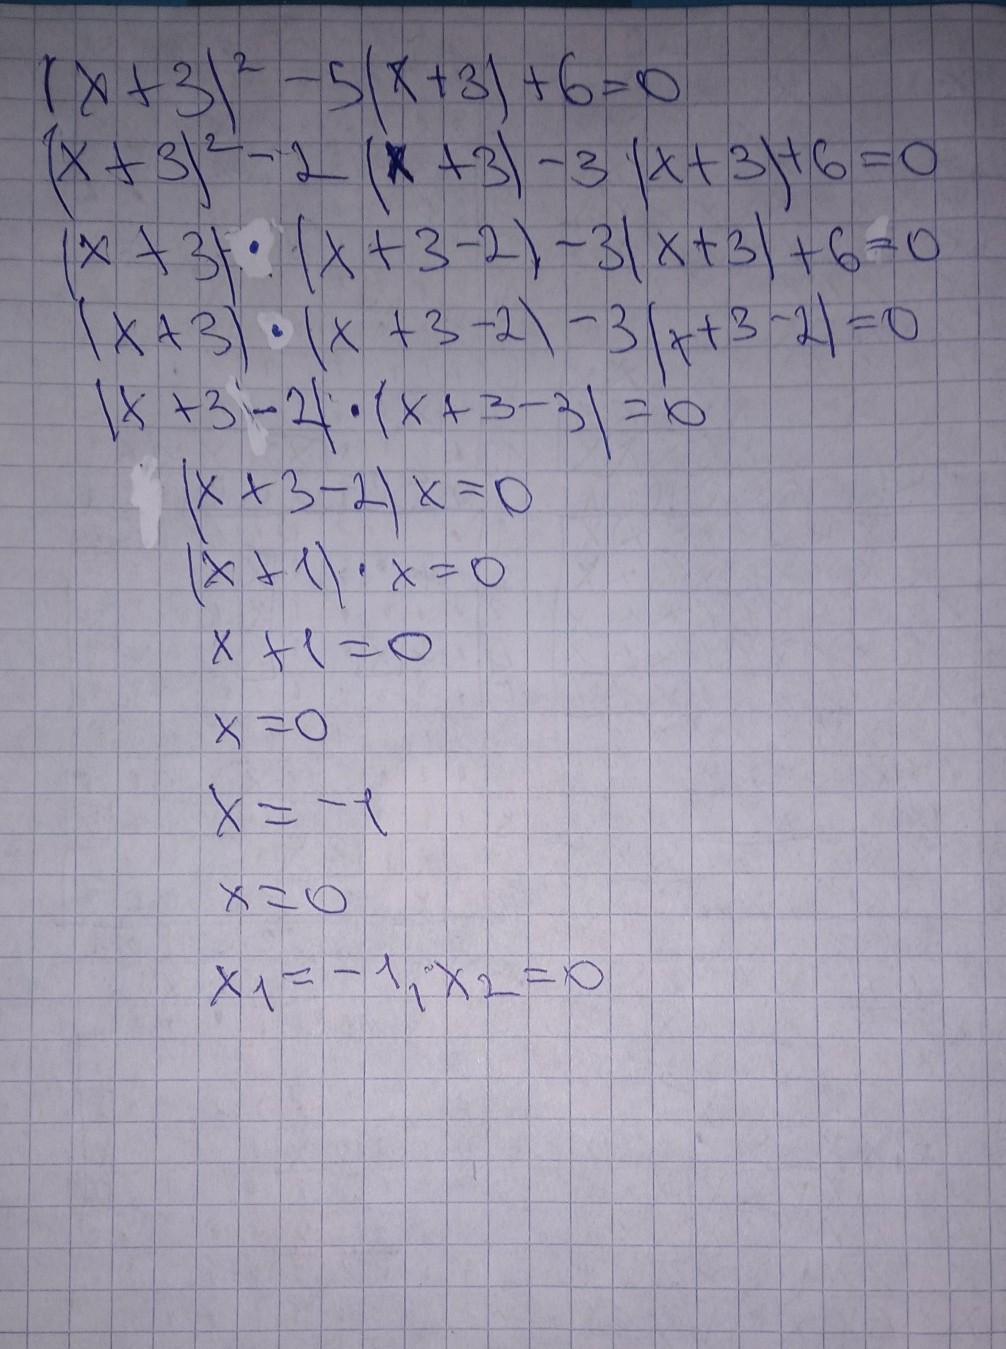 (x+3)² -5(x+3)+6=0
(x+3)² -2(x+3)-3(x+3)+6=0
(x+3)·(x+3-2)-3(x+3)+6=0
(x+3)·(x+3-2)-3(x+3-2)=0
(x+3-2)·(x+3-3)=0
(x+3-2)x=0
(x+1)·x=0
x+1=0
x=0
x=-1
x=0
x₁=-1, x₂=0